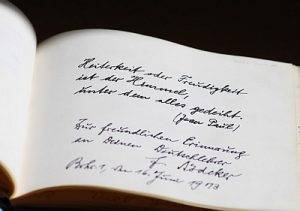 Heiterkeit oder Freudigkeit
ist der Himmel,
unter dem alles gedeiht.
(Jean Paul)
Zur freundlichen Erinnerung
an Deinen Deutschlehrer
F. Südeker
den 16. Juni 1973